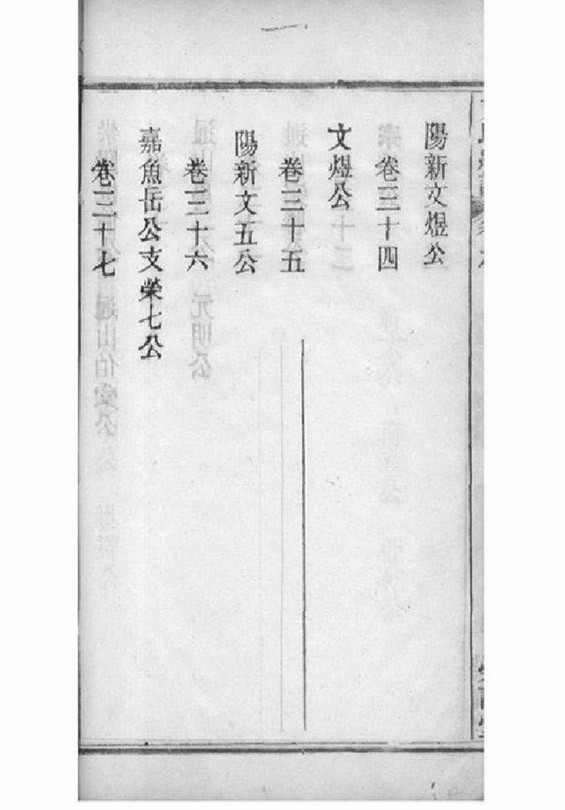 陽新文煜公
卷三十四
文煜公
卷三十五
陽新文五公
卷三十六
嘉魚岳公支榮七公
卷三十七